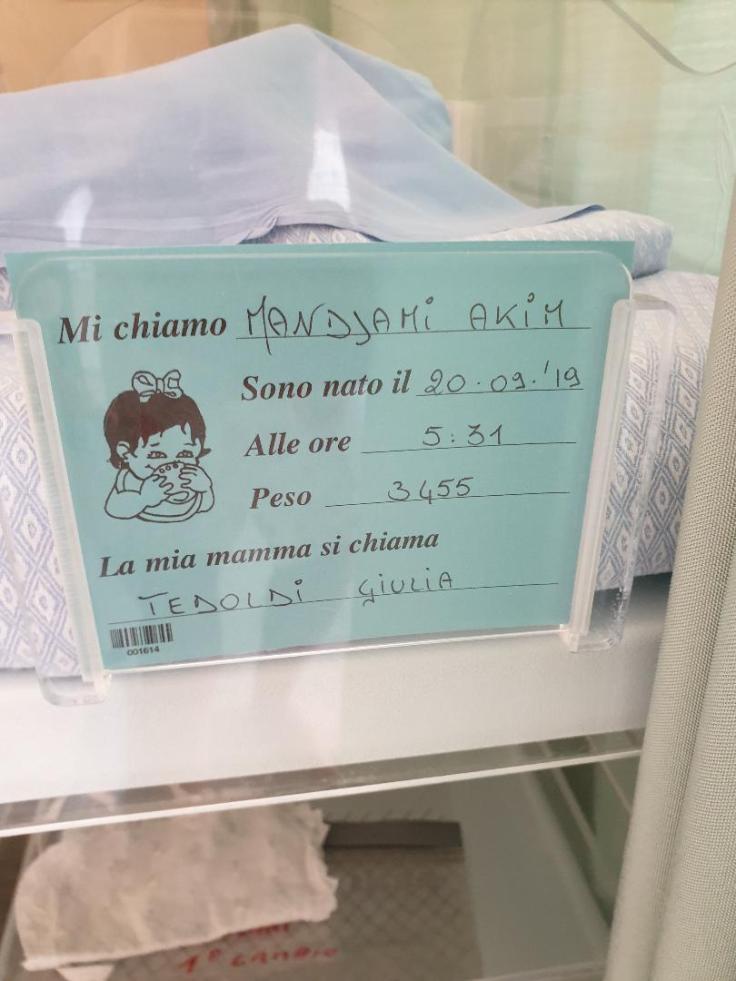 Mi chiamo MANDJAMI AKIM
Sono nato il 20.09.'19
Alle ore 5:31
Peso 3455
La mia mamma si chiama
TEDOLDI GIULIA
001614
1° CAMBIO